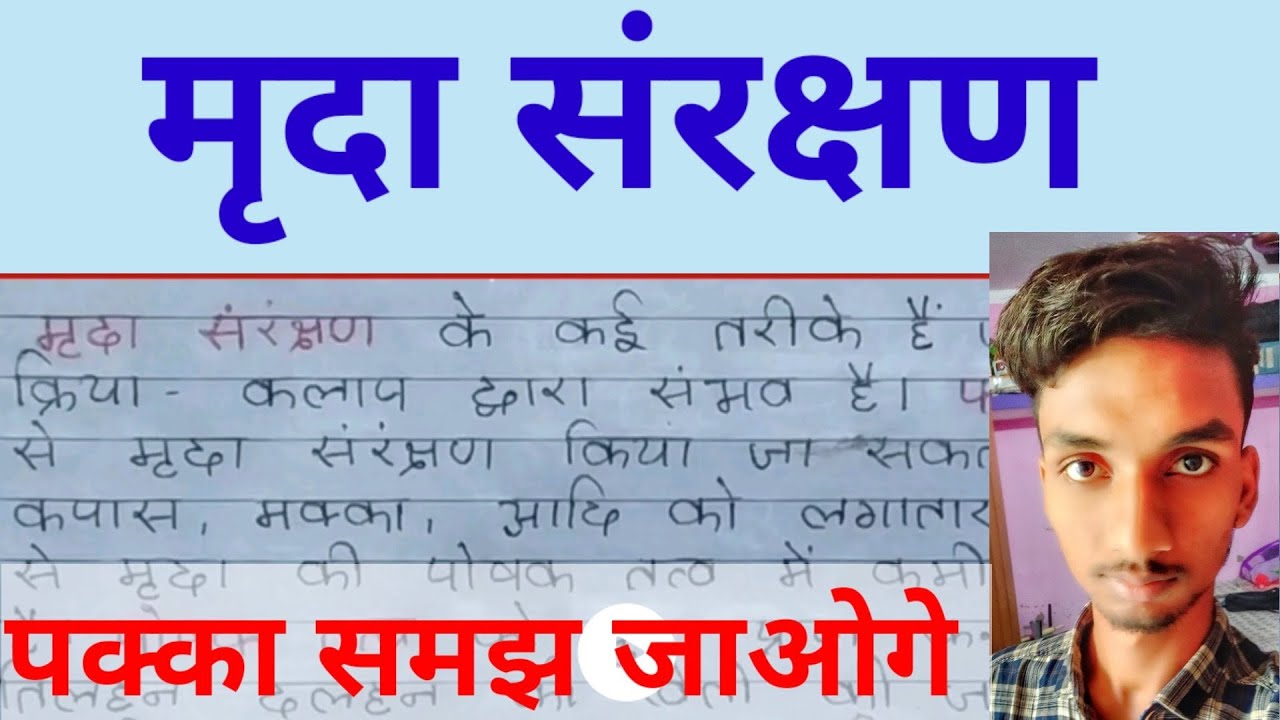 मृदा संरक्षण
मृदा संरंक्षण के कई तरीके हैं
क्रिया - कलाप द्वारा संभव है।
से मृदा संरंक्षण किया जा सकत
कपास, मक्का, आदि को लगातार
से मृदा की पोषक तत्व में कमी
पक्का समझ जाओगे
तिलहन दलहन